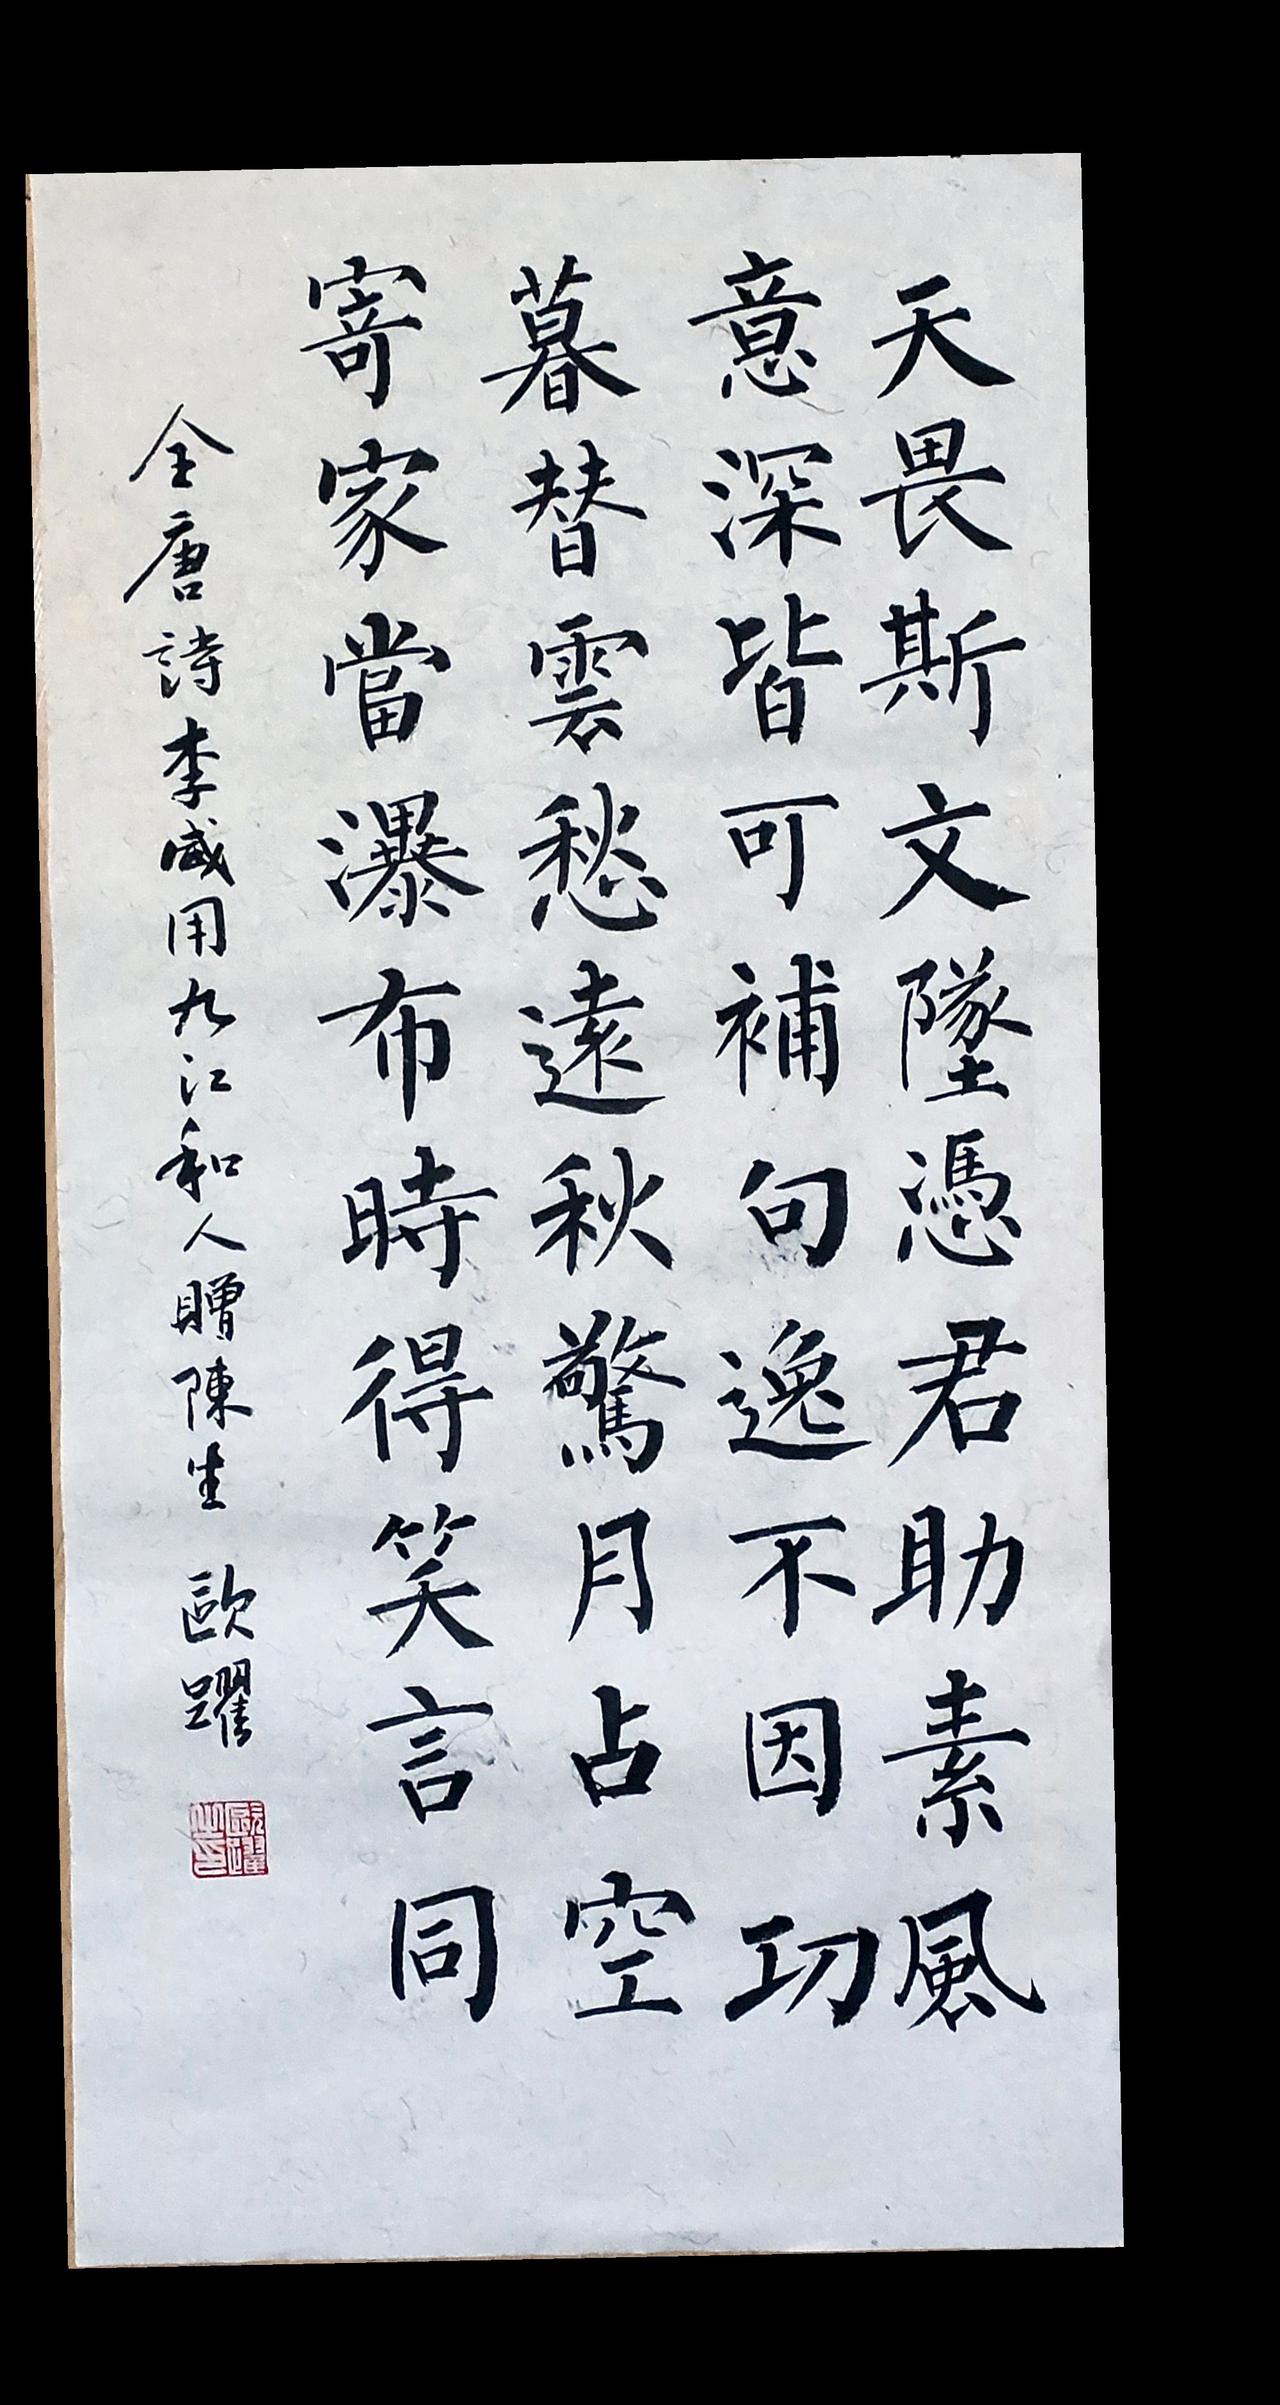 天畏斯文墜憑君助素風
意深皆可補句逸不因功
暮替雲愁遠秋驚月占空
寄家當瀑布時得笑言同
全唐詩李咸用九江和人贈陳生 歐躍
歐躍之印